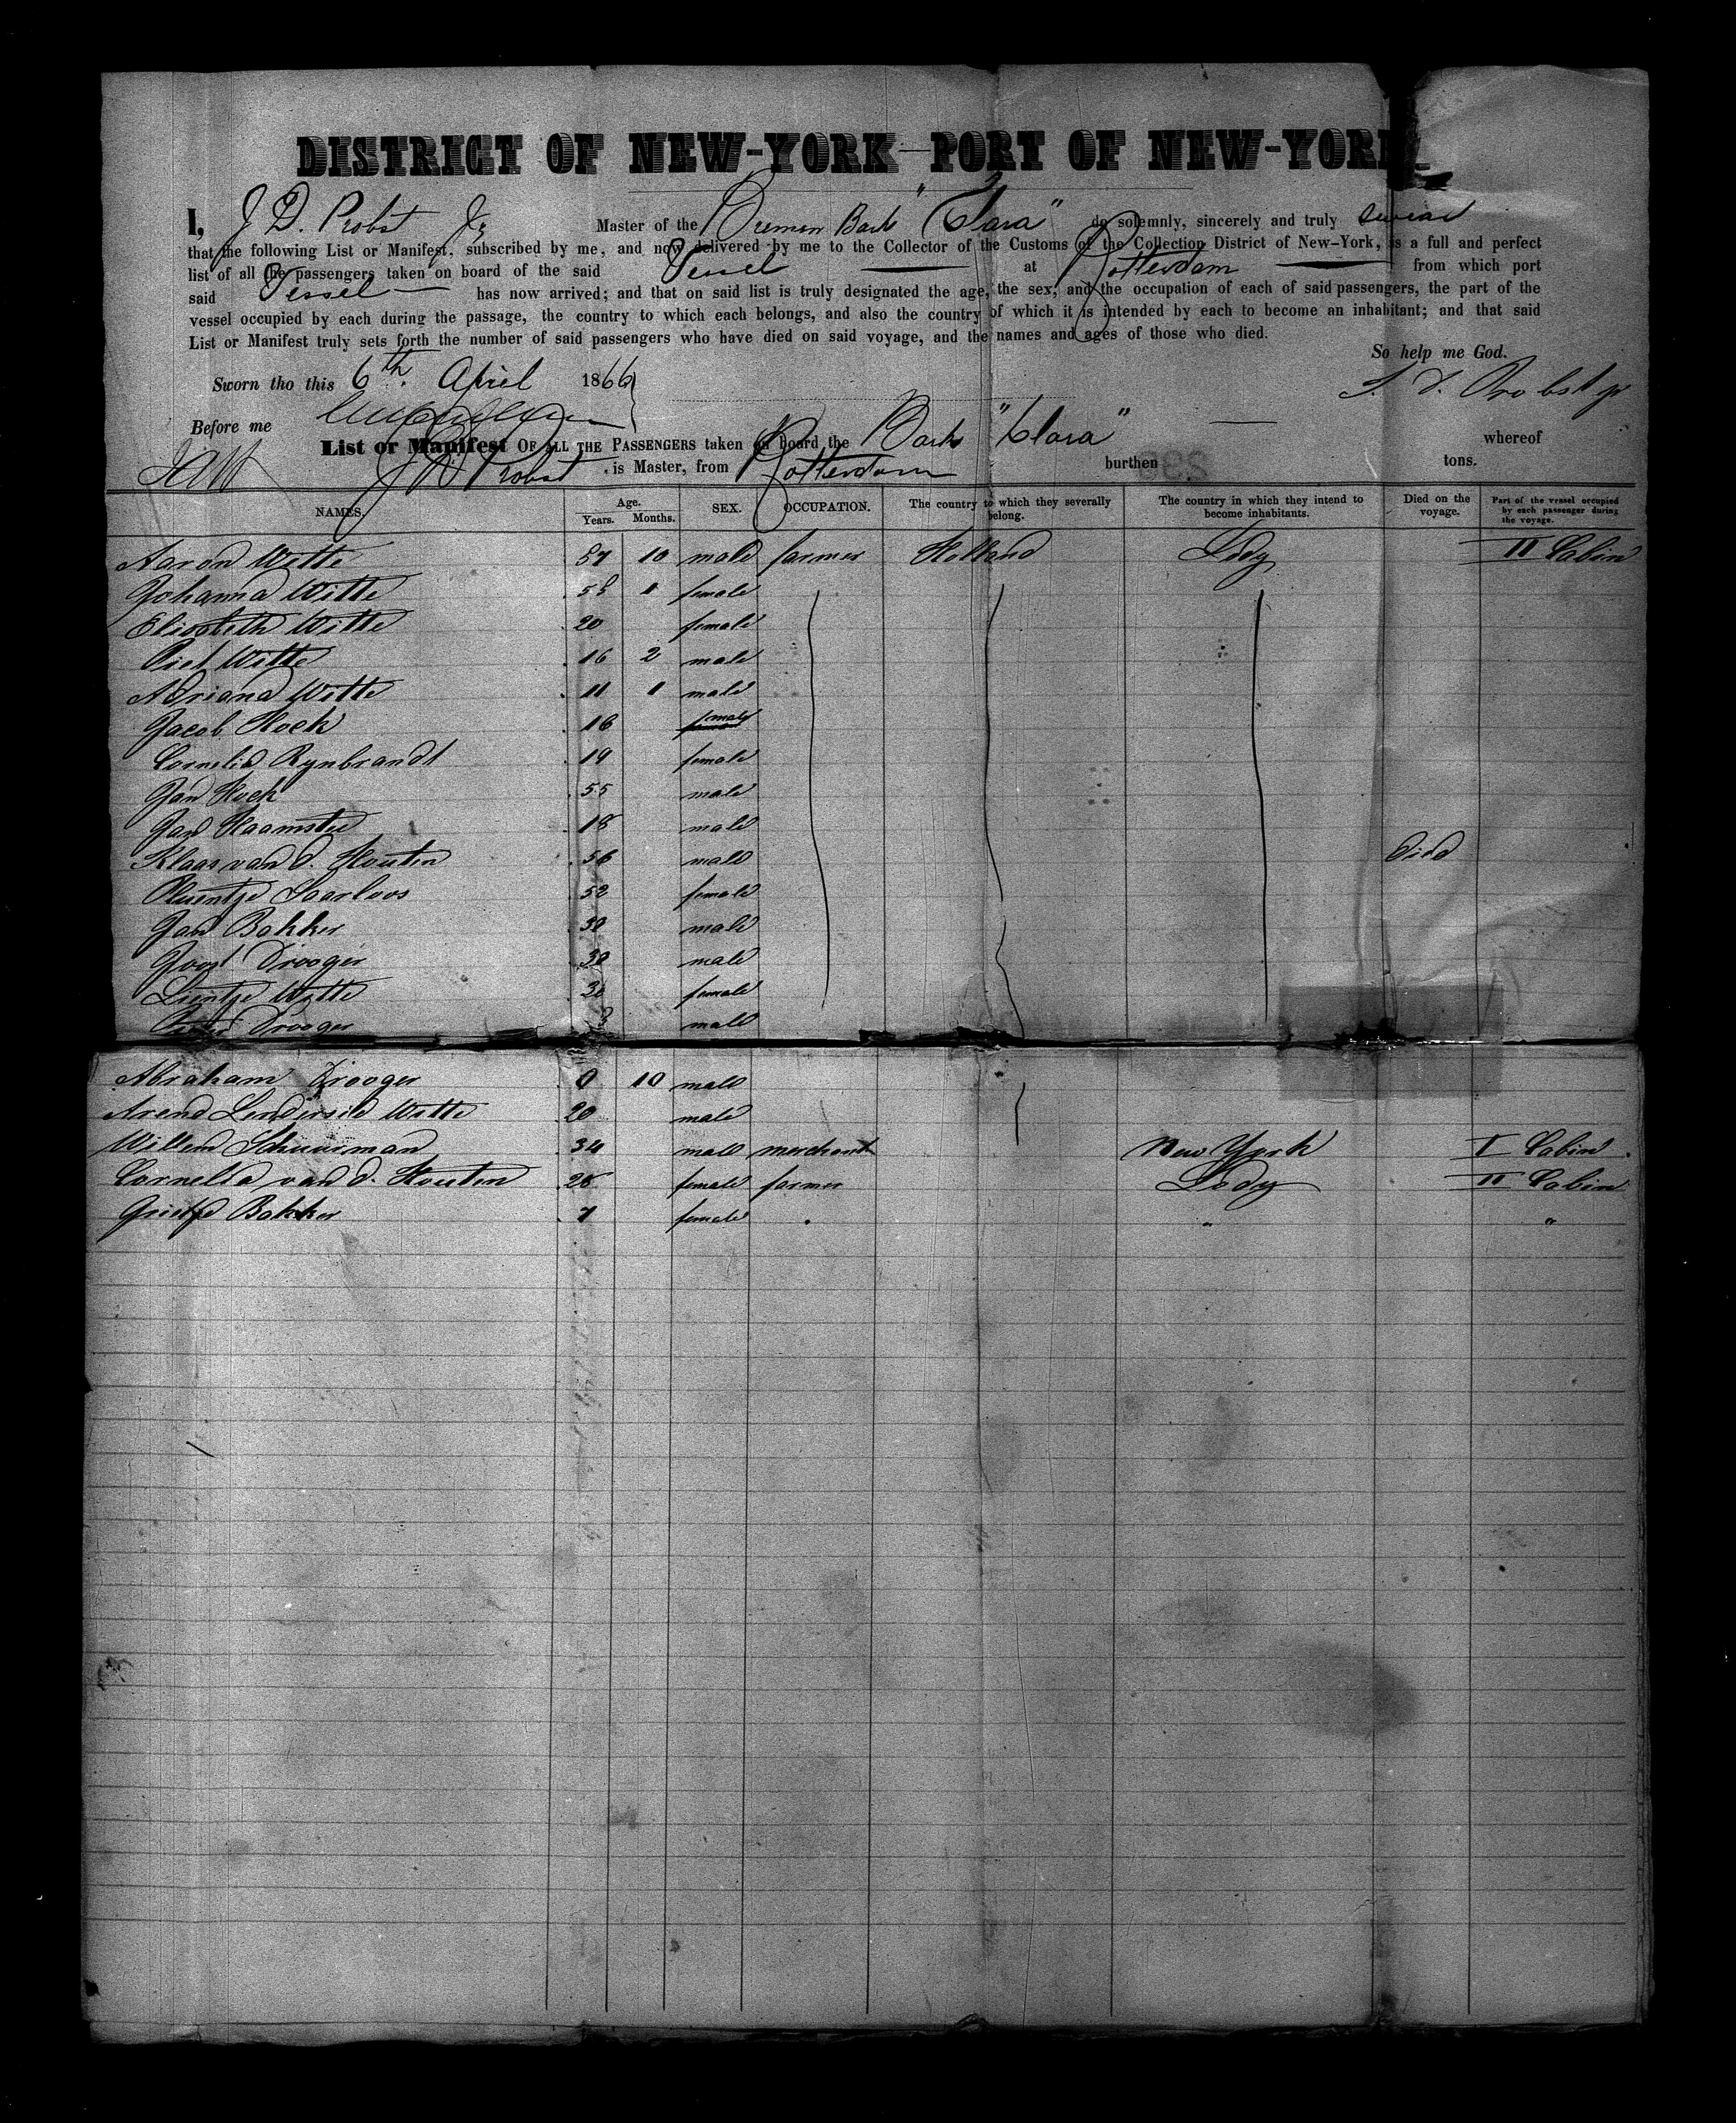 DISTRICT OF NEW-YORK—PORT OF NEW-YORK
I, J. D. Probst Jr Master of the Bremen Bark "Clara" do solemnly, sincerely and truly swear
that the following List or Manifest, subscribed by me, and now delivered by me to the Collector of the Customs of the Collection District of New-York, is a full and perfect
list of all the passengers taken on board of the said Vessel at Rotterdam from which port
said Vessel has now arrived; and that on said list is truly designated the age, the sex, and the occupation of each of said passengers, the part of the
vessel occupied by each during the passage, the country to which each belongs, and also the country of which it is intended by each to become an inhabitant; and that said
List or Manifest truly sets forth the number of said passengers who have died on said voyage, and the names and ages of those who died.
So help me God.
Sworn tho this 6th. April 1866
J. D. Probst jr
Before me
List or Manifest OF ALL THE PASSENGERS taken on board the Bark "Clara" whereof
J. D. Probst is Master, from Rotterdam burthen tons.
NAMES. Age. Years. Months. SEX. OCCUPATION. The country to which they severally belong. The country in which they intend to become inhabitants. Died on the voyage. Part of the vessel occupied by each passenger during the voyage.
Aaron Witte 57 10 male farmer Holland Lody II Cabin
Johanna Witte 55 1 female
Elisabeth Witte 20 female
Piet Witte 16 2 male
Adriana Witte 11 1 male
Jacob Hoek 16 male
Cornelia Rynbrandt 19 female
Jan Hoek 55 male
Jan Haamstee 18 male
Klaas van d. Houten 56 male Died
Pluentje Saarloos 52 female
Jan Bakker 30 male
Joost Drooger 30 male
Lientje Witte 30 female
Drooger male
Abraham Drooger 0 10 male
Arend Lendersed Witte 20 male
Willem Schuurman 34 male merchant New York I Cabin
Cornelia van d. Houten 26 female farmer Lody II Cabin
Grietje Bakker 7 female " "